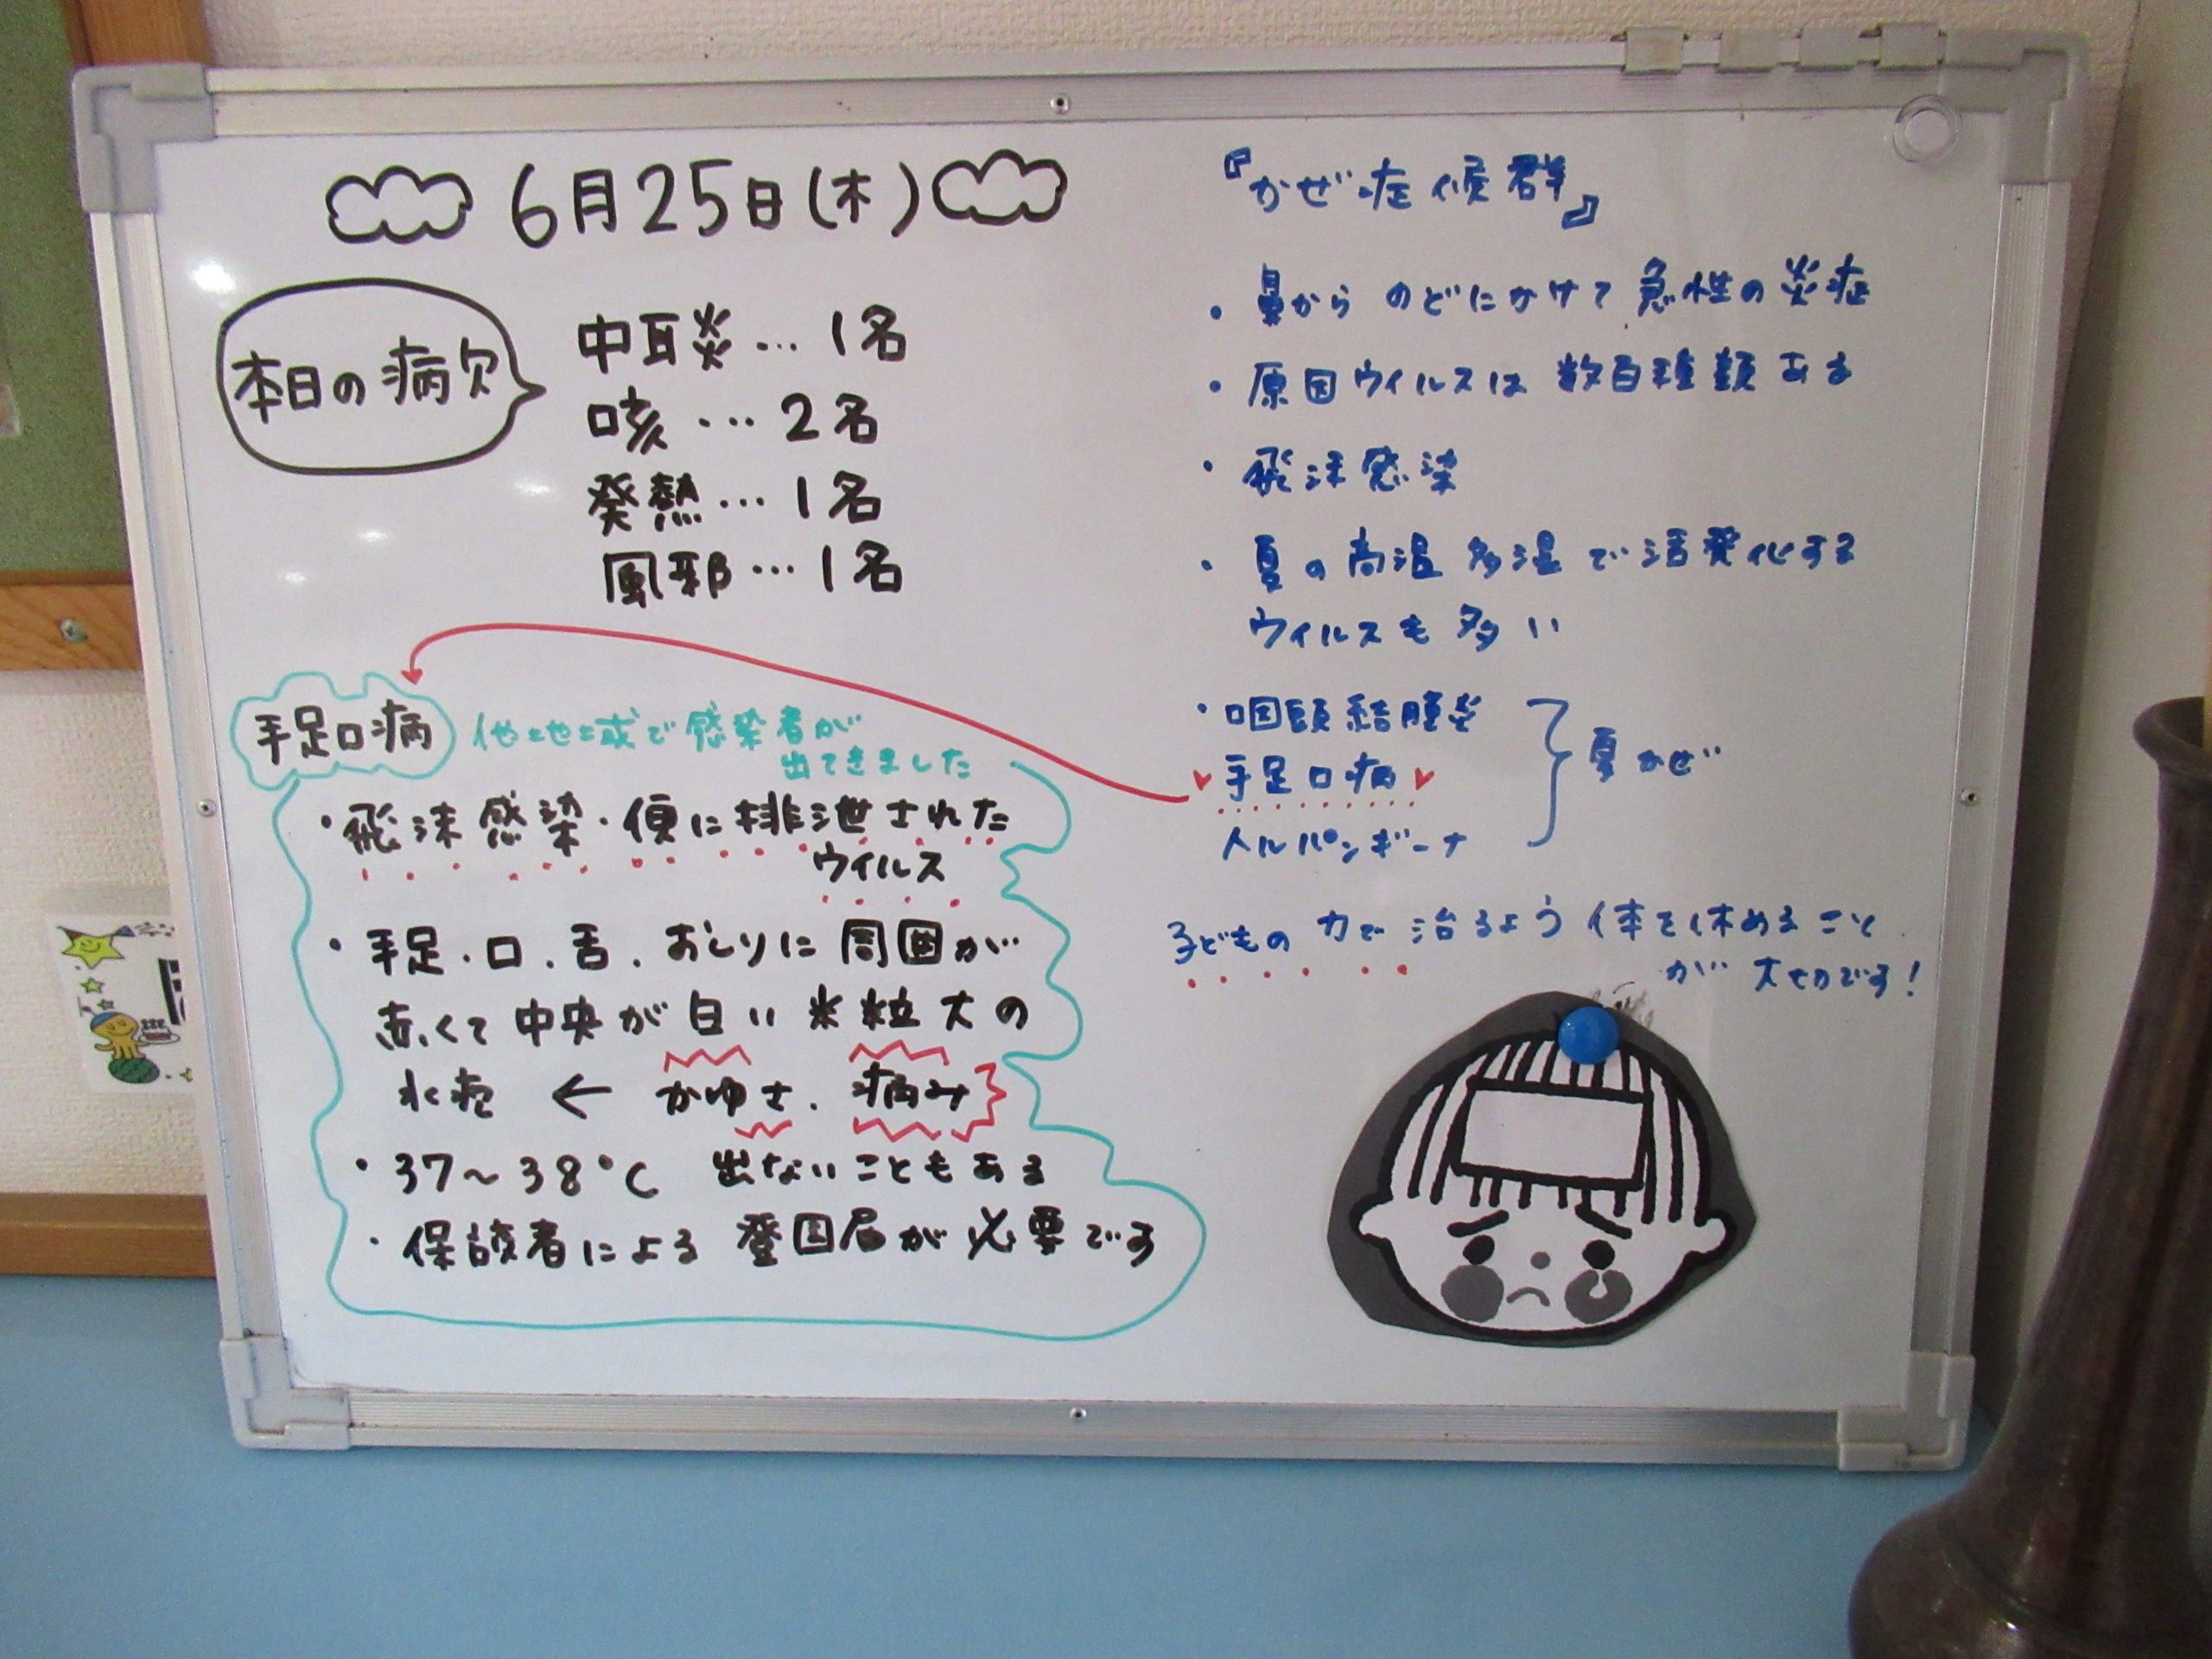 6月25日(木)
本日の病欠
中耳炎… 1名
咳 … 2名
発熱… 1名
風邪… 1名
手足口病
他地域で感染者が
出てきました
・飛沫感染・便に排泄された
ウイルス
・手足・口・舌・おしりに周囲が
赤くて中央が白い米粒大の
水疱 ← かゆさ・痛み
・37〜38℃ 出ないこともある
・保護者による登園届が必要です
『かぜ症候群』
・鼻からのどにかけて急性の炎症
・原因ウイルスは数百種類ある
・飛沫感染
・夏の高温多湿で活発化する
ウイルスも多い
・咽頭結膜炎
手足口病
ヘルパンギーナ
夏かぜ
子どもの力で治るよう体を休めること
が大切です!